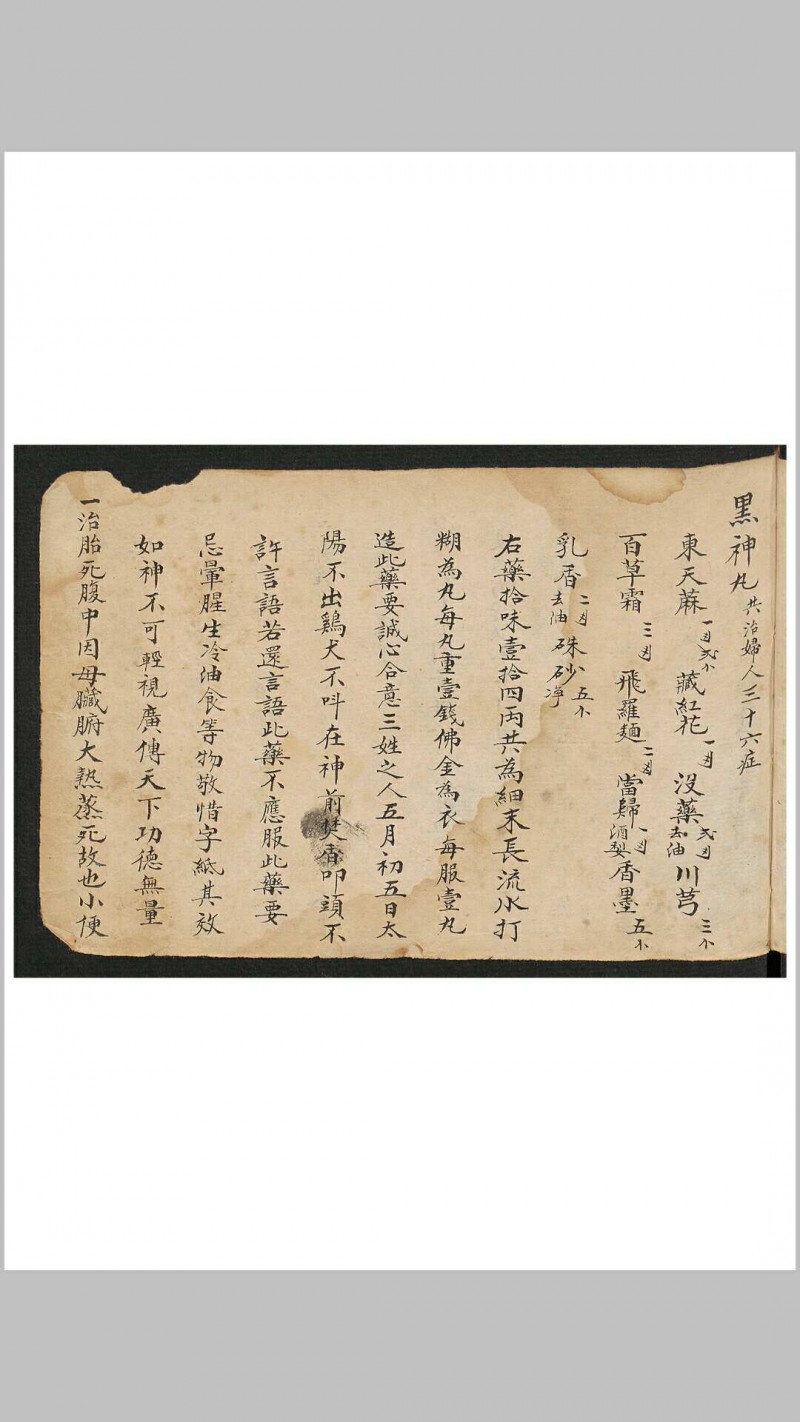 黑神丸共治婦人三十六症
東天蔴一兩弍小 藏紅花一兩 沒藥去油弍兩 川芎三小
百草霜三兩 飛羅麵二兩 當歸酒製一兩 香墨五小
乳香去油二兩 硃砂淨五小
右藥拾味壹拾四両共為細末長流水打
糊為丸每丸重壹錢佛金為衣每服壹丸
造此藥要誠心合意三姓之人五月初五日太
陽不出鷄犬不呌在神前焚香叩頭不
許言語若還言語此藥不應服此藥要
忌暈腥生冷油食等物敬惜字紙其效
如神不可輕視廣傳天下功德無量
一治胎死腹中因母臟腑大熱蒸死故也小便